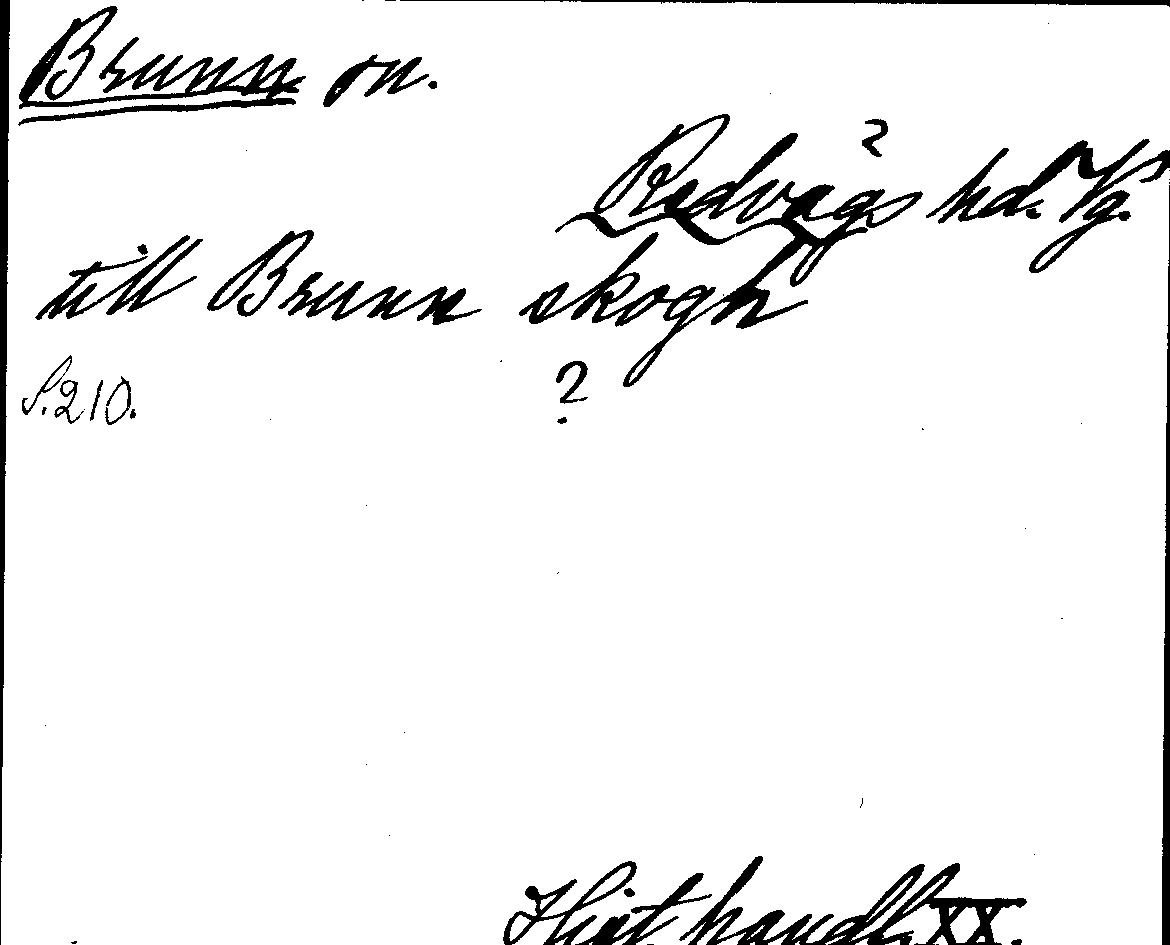 Brunn on.
?
Redvägs hd. Vg.
till Brunn skogh
S. 210. ?
Hist. handl. XX.